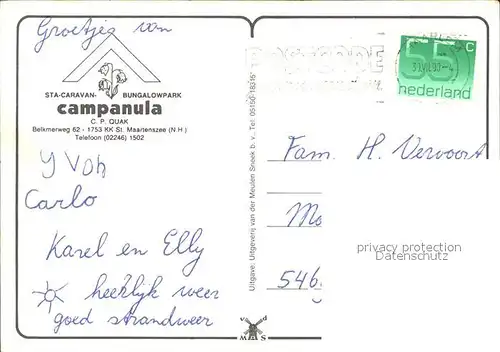 Groetjes van
STA-CARAVAN- BUNGALOWPARK
campanula
C. P. QUAK
Belkmerweg 62 - 1753 KK St. Maartenszee (N.H.)
Telefoon (02246) 1502
Yvon
Carlo
Karel en Elly
heerlijk weer
goed strandweer
Uitgave: Uitgeverij van der Meulen Sneek b.v., Tel. 05150-18315
POSTCODE
55 c
nederland
Fam. H. Vervoort
Mo
546
privacy protection
Datenschutz
v d
M S